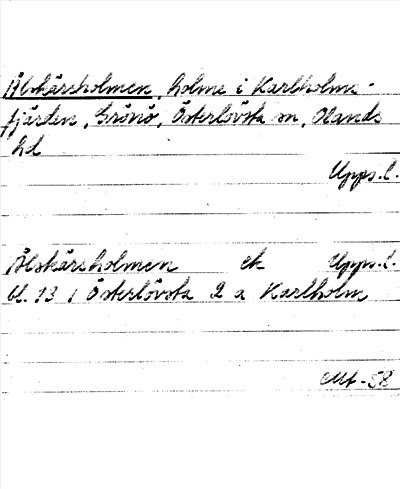 Ålskärsholmen, holme i Karlholms-
fjärden, Grönö, Österlövsta sn, Olands
hd
Upps. l.
Ålskärsholmen ek Upps. l.
bl. 13 i Österlövsta 2 a Karlholm
-58